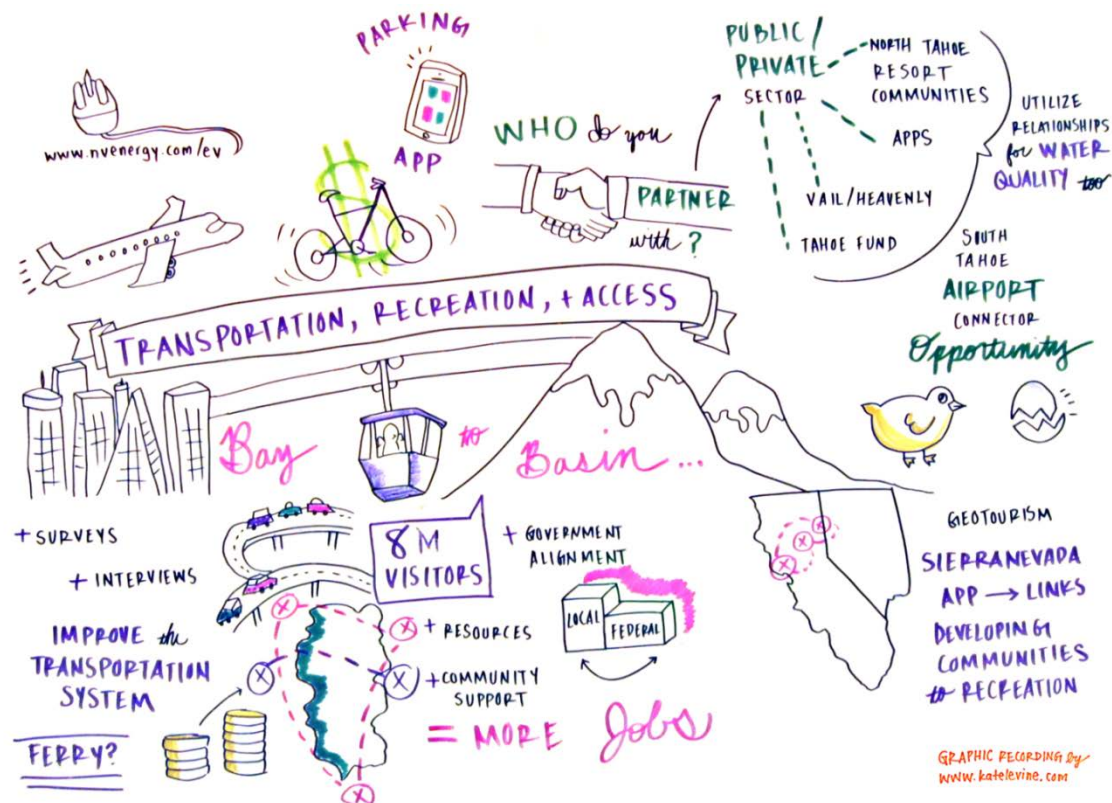 PARKING
APP
www.nvenergy.com/ev
WHO do you
PARTNER
with?
PUBLIC/
PRIVATE
SECTOR
NORTH TAHOE
RESORT
COMMUNITIES
APPS
VAIL/HEAVENLY
TAHOE FUND
UTILIZE
RELATIONSHIPS
for WATER
QUALITY too
SOUTH
TAHOE
AIRPORT
CONNECTOR
Opportunity
TRANSPORTATION, RECREATION, + ACCESS
Bay to Basin...
+ SURVEYS
+ INTERVIEWS
IMPROVE the
TRANSPORTATION
SYSTEM
FERRY?
8M
VISITORS
+ GOVERNMENT
ALIGNMENT
LOCAL
FEDERAL
+ RESOURCES
+ COMMUNITY
SUPPORT
= MORE Jobs
GEOTOURISM
SIERRANEVADA
APP → LINKS
DEVELOPING
COMMUNITIES
to RECREATION
GRAPHIC RECORDING by
www.katelevine.com